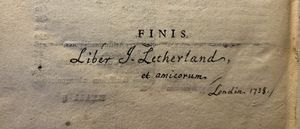 FINIS.
Liber J. Letherland,
et amicorum.
London. 1738.